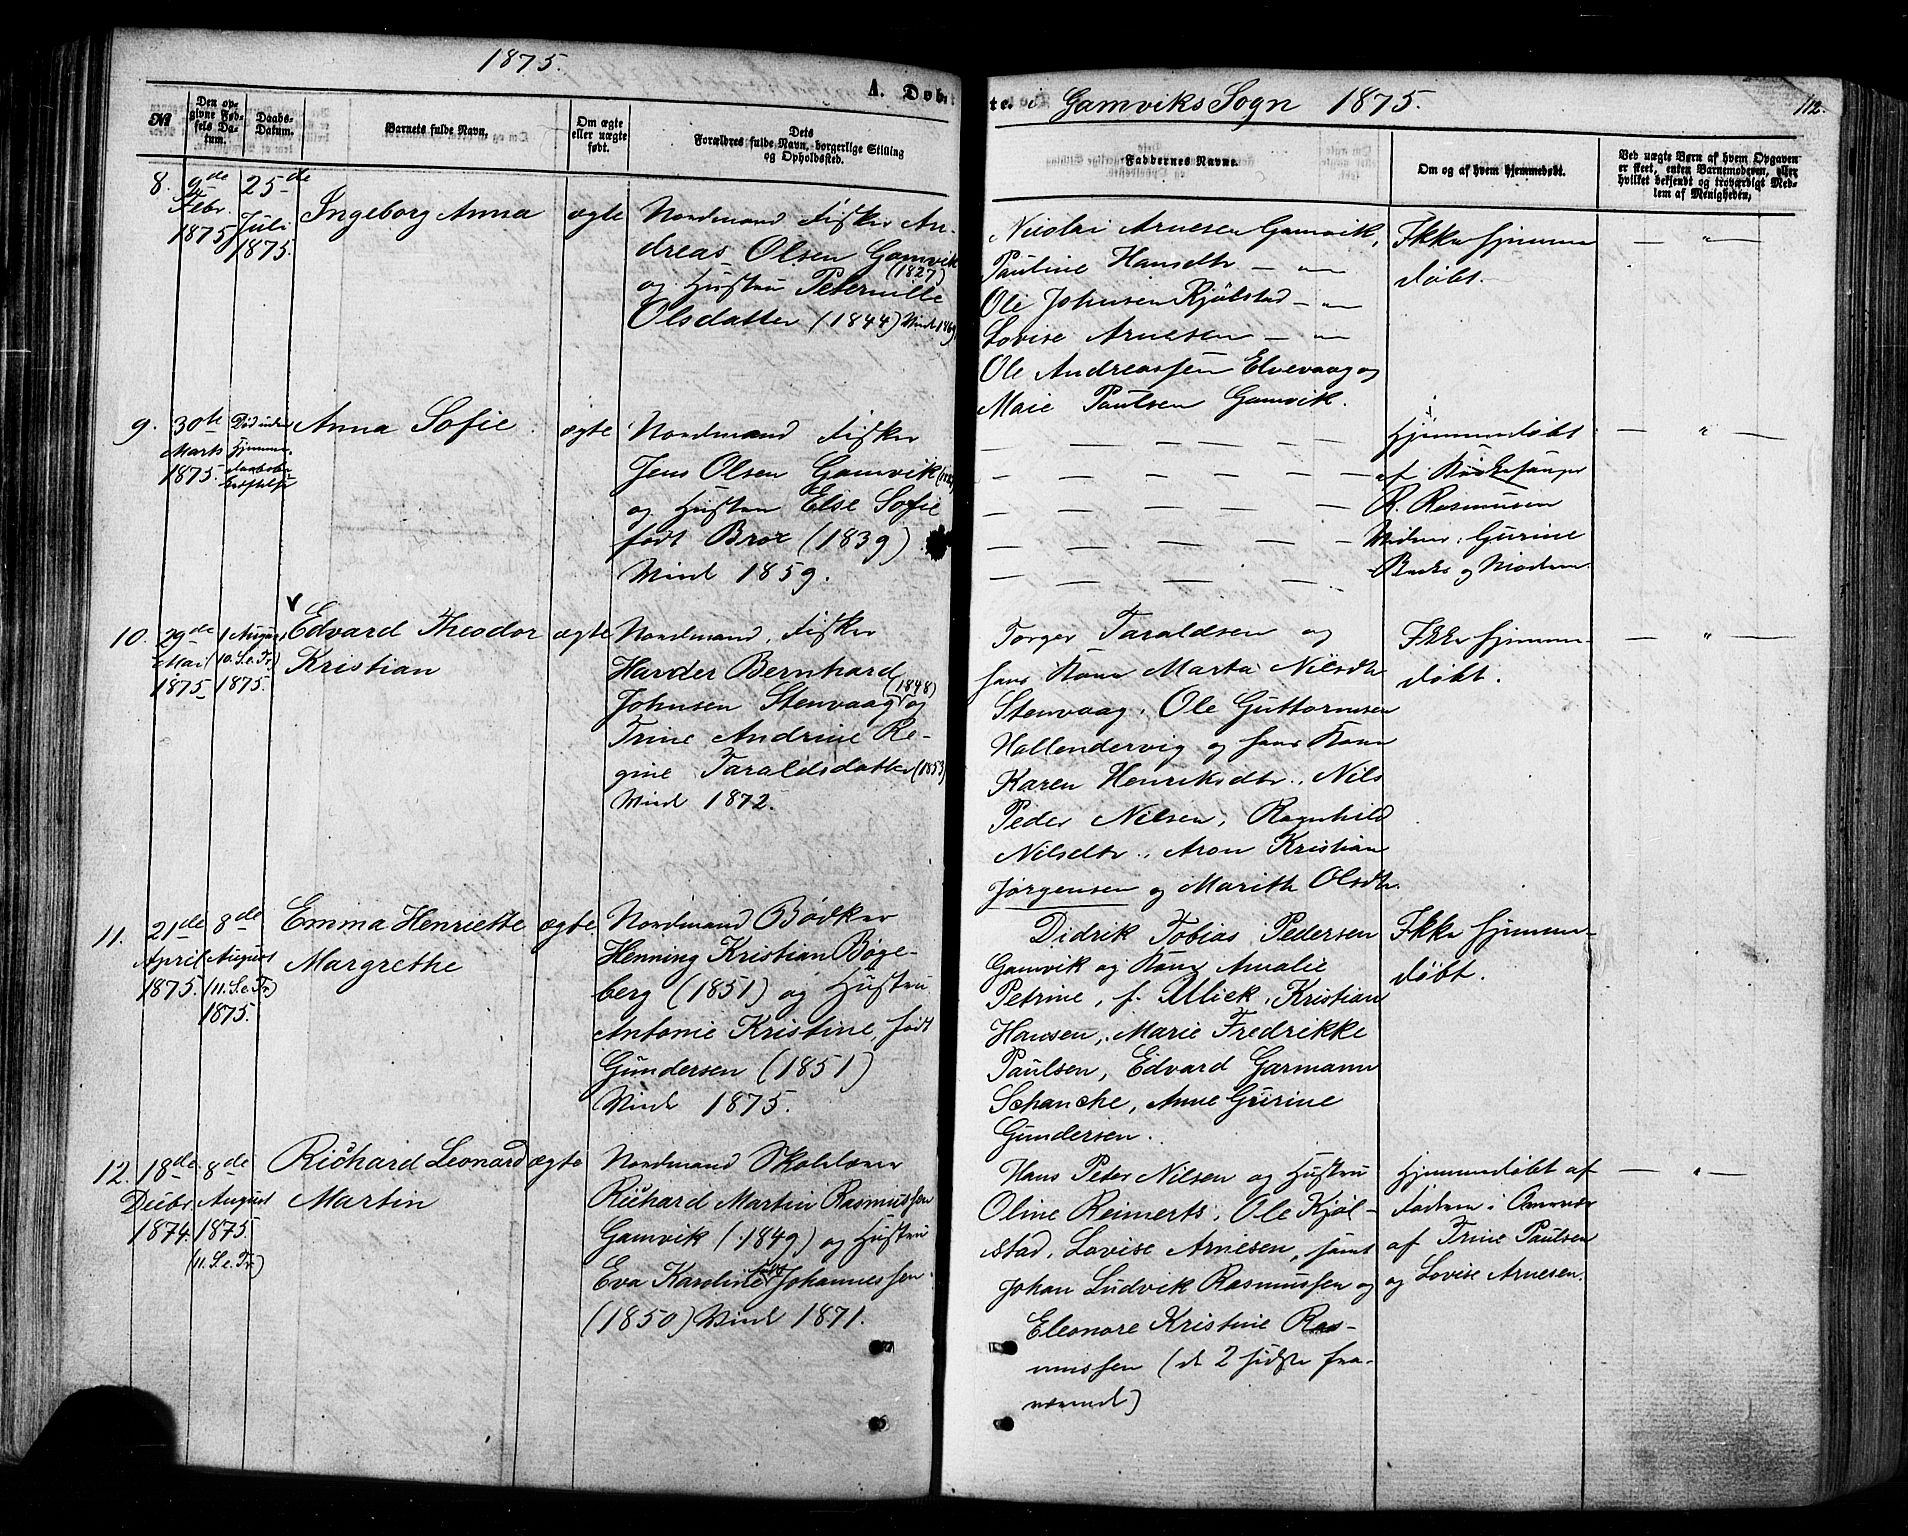 1875.
A. Døbte i Gamviks Sogn 1875.
112.
№
Den opgivne Fødsels Datum.
Daabs-Datum.
Barnets fulde Navn.
Om ægte eller uægte født.
Dets Forældres fulde Navn, borgerlige Stilling og Opholdssted.
Faddernes Navne.
Om og af hvem hjemmedøbt.
Ved uægte Børn af hvem Opgaven er skeet, enten Barnemoderen, eller hvilket bekjendt og troværdigt Medlem af Menigheden.
8.
9de
Febr.
1875
25de
Juli
1875.
Ingeborg Anna
ægte
Nordmand Fisker An-
dreas Olsen Gamvik
(1827)
og Hustru Peternille
Olsdatter (1844) Viet 1869
Nicolai Arnesen Gamvik,
Pauline Hansdtr — " —
Ole Johnsen Kjölstad — " —
Lovise Arnesen — " —
Ole Andreassen Elvevaag og
Maie Paulsen Gamvik.
Ikke hjemme
döbt.
— " —
9.
30te
Marts
1875.
Död uden
Hjemme-
daabsbe
kræftelse
Anna Sofie
ægte
Nordmand Fisker
Jens Olsen Gamvik
og Hustru Else Sofie
født Broe (1839)
Viet 1859.
Hjemmedöbt
af
R. Rasmussen
Vidner: Gurine
og Moderen.
— " —
10.
29de
Mai
1875
1 August
(10. S. e. Tr.)
1875.
Edvard Theodor
Kristian
ægte
Nordmand, Fisker
Harder Bernhard
(1848)
Johnsen Stenvaag og
Trine Andrine Re-
gine Taraldsdatter (1853)
Viet 1872.
Torger Taraldsen og
hans Kone Marta Nilsdtr
Stenvaag, Ole Guttormsen
Hollendervig og hans Kone
Karen Henriksdtr., Nils
Peder Nilsen, Ragnhild
Nilsdtr., Aron Kristian
Jørgensen og Marith Olsdtr.
Ikke hjemme-
döbt.
— " —
11.
21de
April
1875.
8de
August
(11. S. e. Tr.)
1875.
Emma Henriette
Margrethe
ægte
Nordmand Bødker
Henning Kristian Bøge-
berg (1851) og Hustru
Antonie Kristine, født
Gundersen (1851)
Viet 1875.
Didrik Tobias Pedersen
Gamvik og Kone Amalie
Petrine, f. Ulick, Kristian
Hansen, Marie Fredrikke
Paulsen, Edvard Garmann
Schanche, Anne Gurine
Gundersen.
Ikke hjemme-
döbt.
12.
18de
Decbr
1874.
8de
August
1875.
(11. S. e. Tr.)
Richard Leonard
Martin
ægte
Nordmand Skolelærer
Richard Martin Rasmussen
Gamvik (1849) og Hustru
Eva Karoline født Johannessen
(1850) Viet 1871.
Hans Peter Nilsen og Hustru
Oline Reimerts, Ole Kjøl-
stad, Lovise Arnesen, samt
Johan Ludvik Rasmussen og
Eleonore Kristine Ras-
mussen (de 2 sidste fra-
værende)
Hjemmedöbt af
Faderen i Overvær
af Trine Paulsen
og Lovise Arnesen.
— " —